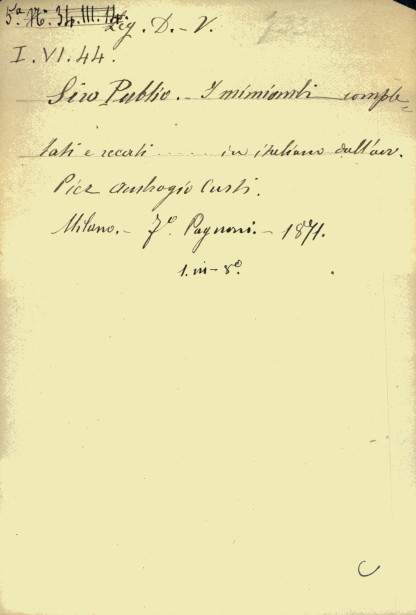 5ª N: 34.III.14.
Leg. D. - V.
I. VI. 44.
Siro Publio. - I mimiambi comple-
tati e recati ...... in italiano dall'avv.
Pier Ambrogio Curti.
Milano. - Fº. Pagnoni. - 1871.
1. in - 8º.
C